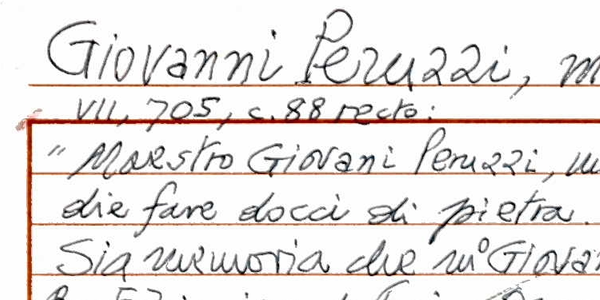 Giovanni Peruzzi, m
VII, 705, c. 88 recto:
"Maestro Giovani Peruzzi, m
die fare docci di pietra.
Sia memoria che m° Giovan